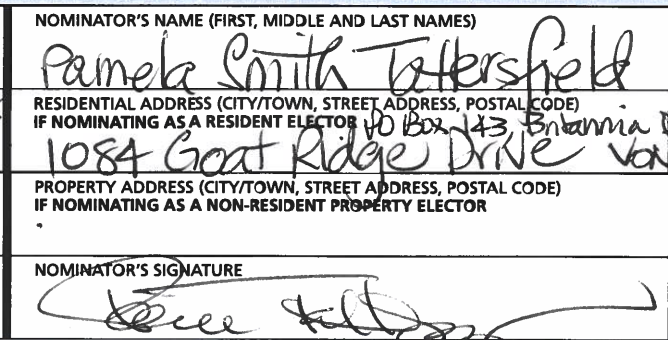 NOMINATOR'S NAME (FIRST, MIDDLE AND LAST NAMES)
Pamela Smith Tattersfield
RESIDENTIAL ADDRESS (CITY/TOWN, STREET ADDRESS, POSTAL CODE)
IF NOMINATING AS A RESIDENT ELECTOR PO Box 143, Britannia
1084 Goat Ridge Drive VON
PROPERTY ADDRESS (CITY/TOWN, STREET ADDRESS, POSTAL CODE)
IF NOMINATING AS A NON-RESIDENT PROPERTY ELECTOR
NOMINATOR'S SIGNATURE